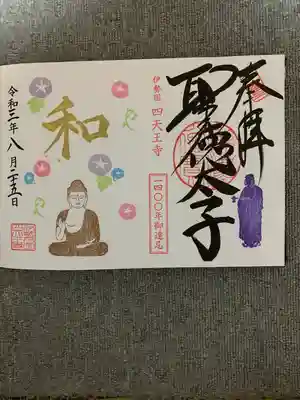 奉拝
聖徳太子
伊勢国 四天王寺
一四〇〇年御遠忌
和
令和三年八月二十五日